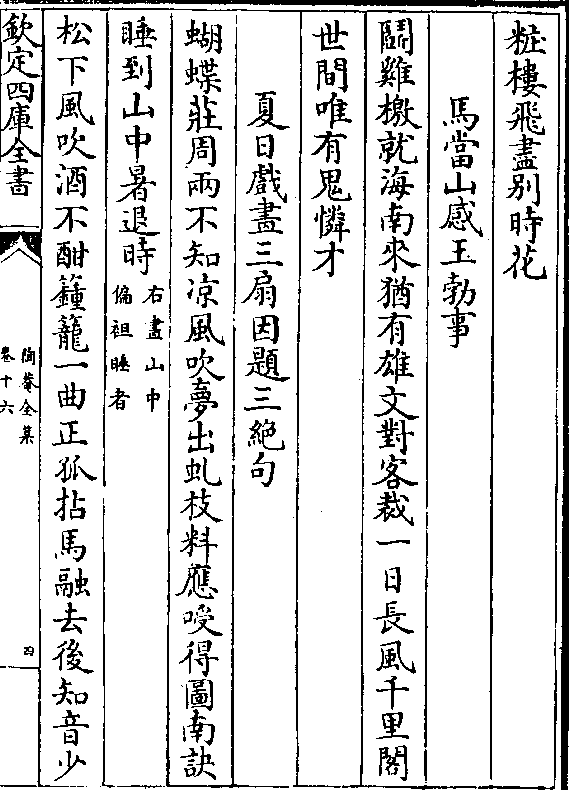 粧樓飛盡別時花
馬當山感王勃事
鬪雞檄就海南來猶有雄文對客裁一日長風千里閣
世間唯有鬼憐才
夏日戲畫三扇因題三絶句
蝴蝶莊周兩不知凉風吹夢出虬枝料應唆得圖南訣
睡到山中暑退時右畫山中偏袒睡者
松下風吹酒不酣籦籠一曲正狐拈馬融去後知音少
欽定四庫全書
陶菴全集
卷十六
四